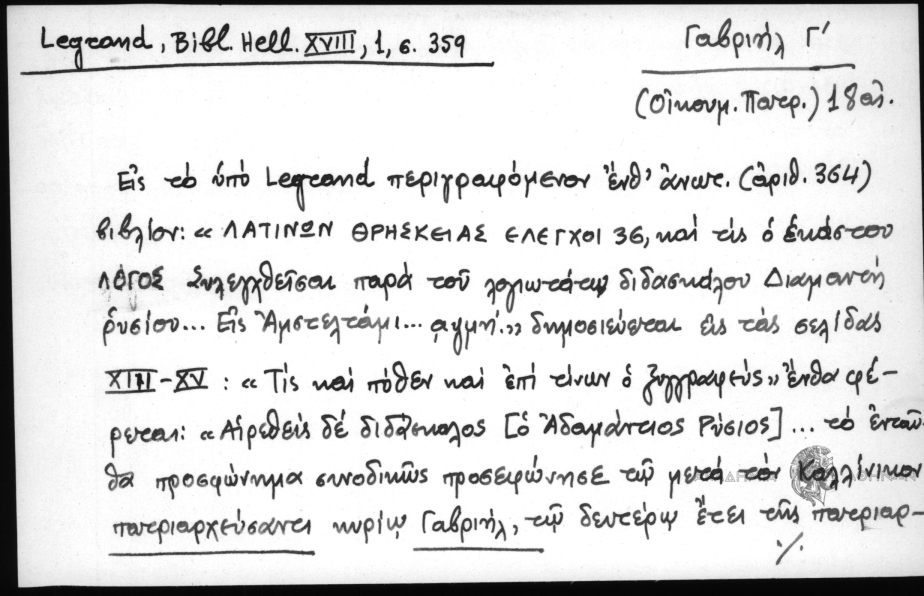 Legrand, Bibl. Hell. XVIII, 1, σ. 359
Γαβριήλ Γ′
(Οἰκουμ. Πατρ.) 18 αἰ.
Εἰς τὸ ὑπὸ Legrand περιγραφόμενον ἔνθ' ἀνωτ. (ἀριθ. 364)
βιβλίον: « ΛΑΤΙΝΩΝ ΘΡΗΣΚΕΙΑΣ ΕΛΕΓΧΟΙ 36, καὶ τίς ὁ ἑκάστου
ΛΟΓΟΣ Συλεγχθεῖσαι παρὰ τοῦ λογιωτάτου διδασκάλου Διαμαντῆ
ῥυσίου... Εἰς Ἀμστελτάμι... ͵αψμή.» δημοσιεύεται εἰς τὰς σελίδας
XIII-XV : « Τίς καὶ πόθεν καὶ ἐπὶ τίνων ὁ ξυγγραφεύς» ἔνθα φέ-
ρεται: « Αἱρεθεὶς δὲ διδάσκαλος [ὁ Ἀδαμάντιος Ρύσιος] ... τὸ ἐνταῦ-
θα προσφώνημα συνοδικῶς προσεφώνησε τῷ μετὰ τὸν Καλλίνικον
πατριαρχεύσαντι κυρίῳ Γαβριήλ, τῷ δευτέρῳ ἔτει τῆς πατριαρ-
./.